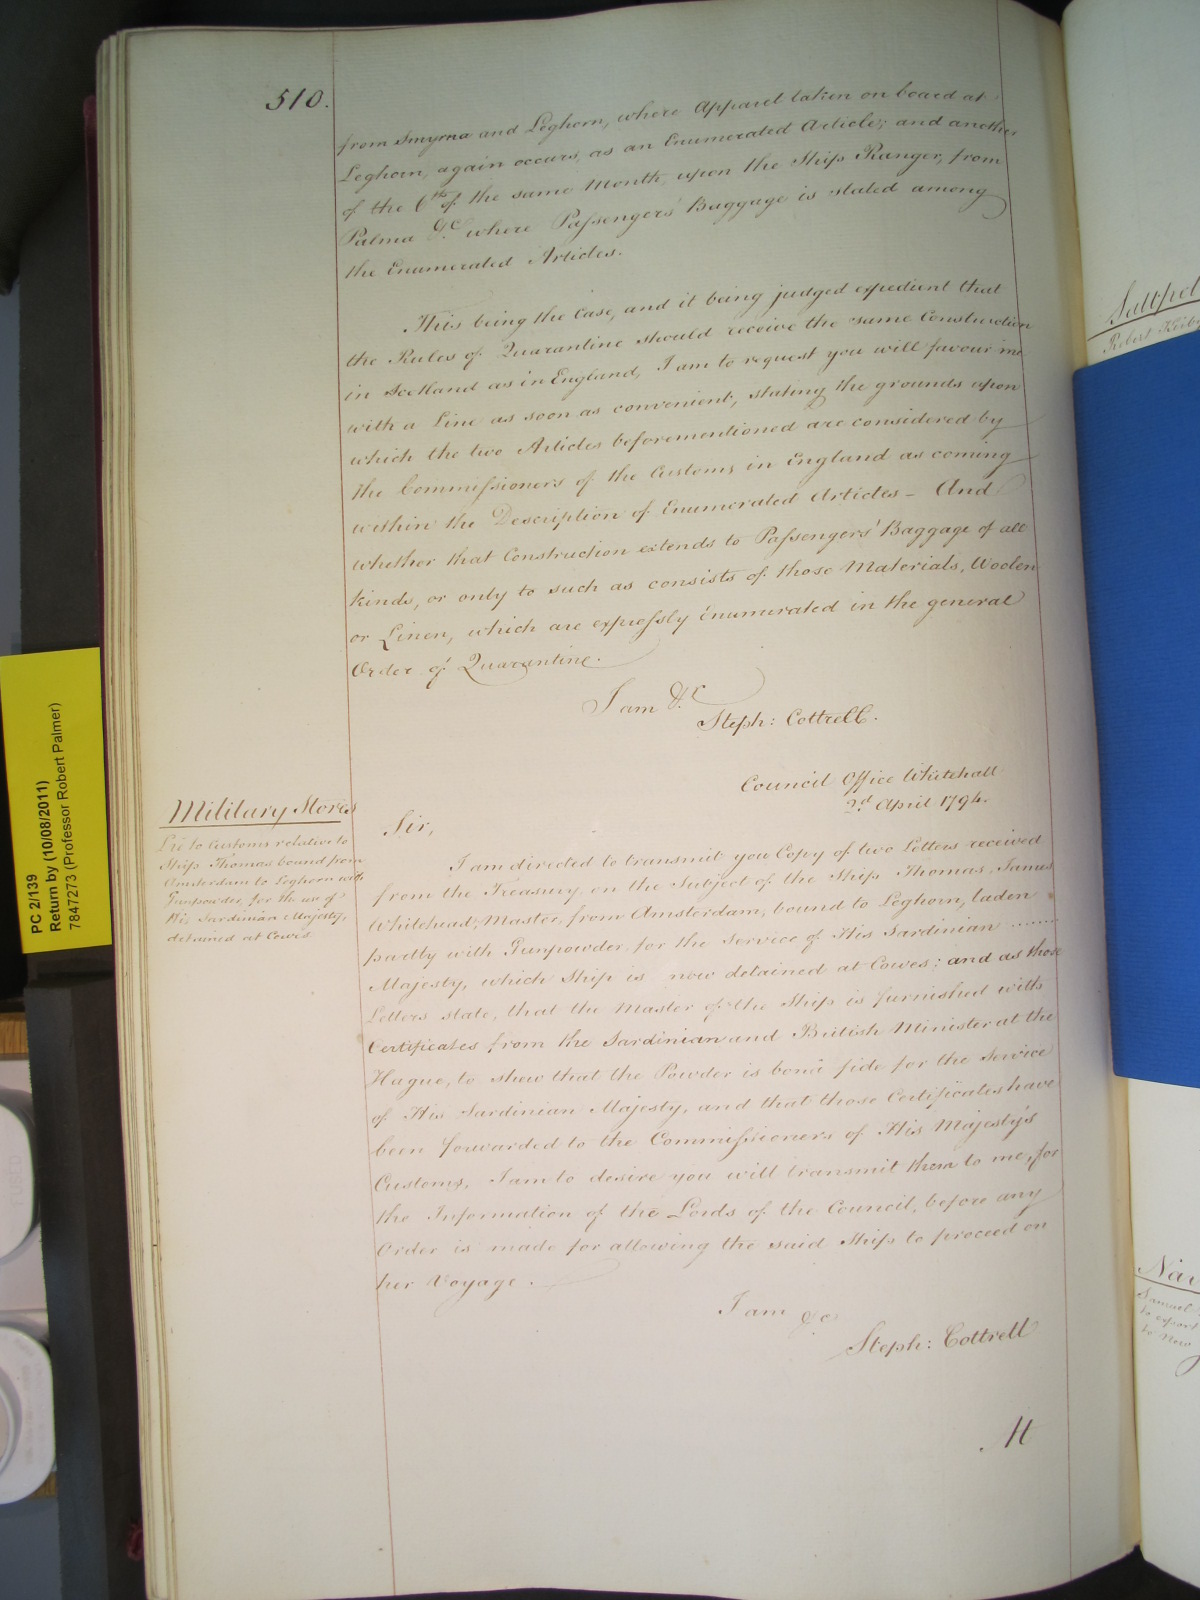 510.
from Smyrna and Leghorn, where Apparel taken on board at
Leghorn, again occurs, as an Enumerated Article; and another
of the 6th of the same Month, upon the Ship Ranger, from
Palma &c. where Passengers' Baggage is stated among
the Enumerated Articles.
This being the Case, and it being judged expedient that
the Rules of Quarantine should receive the same Construction
in Scotland as in England, I am to request you will favour me
with a Line as soon as convenient, stating the grounds upon
which the two Articles beforementioned are considered by
the Commissioners of the Customs in England as coming
within the Description of Enumerated Articles - And
whether that Construction extends to Passengers' Baggage of all
kinds, or only to such as consists of those Materials, Woolen
or Linen, which are expressly Enumerated in the general
Order of Quarantine.
I am &c
Steph: Cottrell.
Council Office Whitehall
2d April 1794.
Military Stores
Lre to Customs relative to
Ship Thomas bound from
Amsterdam to Leghorn with
Gunpowder for the use of
His Sardinian Majesty,
detained at Cowes
Sir,
I am directed to transmit you Copy of two Letters received
from the Treasury, on the Subject of the Ship Thomas, James
Whitehead, Master, from Amsterdam, bound to Leghorn, laden
partly with Gunpowder for the Service of His Sardinian ........
Majesty, which Ship is now detained at Cowes; and as those
Letters state, that the Master of the Ship is furnished with
Certificates from the Sardinian and British Minister at the
Hague, to shew that the Powder is bonâ fide for the Service
of His Sardinian Majesty, and that those Certificates have
been forwarded to the Commissioners of His Majesty's
Customs, I am to desire you will transmit them to me, for
the Information of the Lords of the Council, before any
Order is made for allowing the said Ship to proceed on
her Voyage.
I am &c
Steph: Cottrell
At
PC 2/139
Return by (10/08/2011)
7847273 (Professor Robert Palmer)
Robert
Samuel
to export
to New